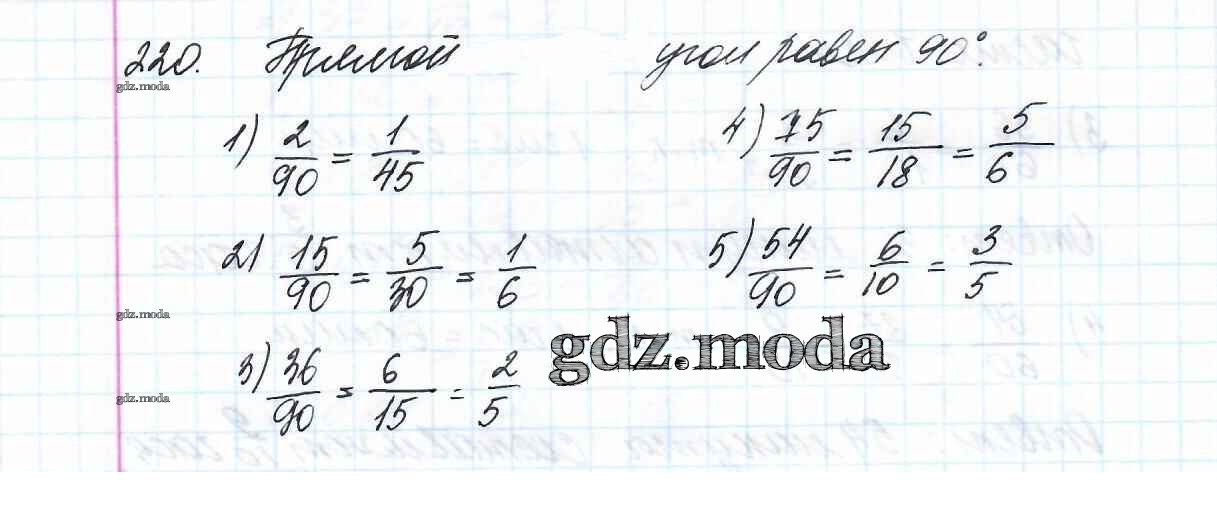 220. Прямой угол равен 90°.
gdz.moda
1) 2/90 = 1/45
4) 75/90 = 15/18 = 5/6
2) 15/90 = 5/30 = 1/6
5) 54/90 = 6/10 = 3/5
gdz.moda
gdz.moda
3) 36/90 = 6/15 = 2/5
gdz.moda